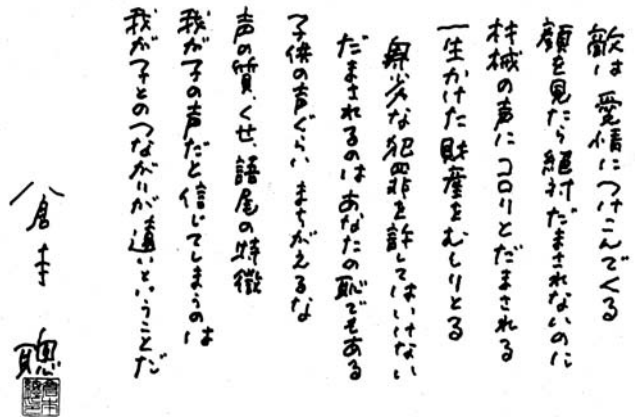 敵は愛情につけこんでくる
顔を見たら絶対だまされないのに
機械の声にコロリとだまされる
一生かけた財産をむしりとる
卑劣な犯罪を許してはいけない
だまされるのはあなたの恥でもある
子供の声ぐらいまちがえるな
声の質、くせ、語尾の特徴
我が子の声だと信じてしまうのは
我が子とのつながりが遠いということだ
倉本 聰